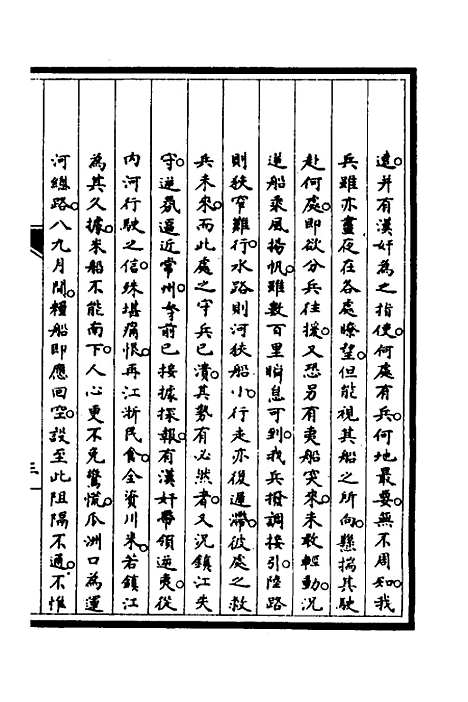 遠。并有漢奸為之指使。何處有兵。何地最要。無不周知。我
兵雖亦晝夜在各處瞭望。但能視其船之所向。懸揣其駛
赴何處。即欲分兵往援。又恐另有夷船突來。未敢輕動。況
逆船乘風揚帆。雖數百里瞬息可到。我兵撥調接引。陸路
則狹窄難行。水路則河狹船小。行走亦復遲滯。彼處之救
兵未來。而此處之守兵已潰。其勢有必然者。又況鎮江失
守。逆氛逼近常州。奴才前已接據探報。有漢奸帶領逆夷。從
內河行駛之信。殊堪痛恨。再江浙民食。全資川米。若鎮江
為其久據。米船不能南下。人心更不免驚慌。瓜洲口為運
河總路。八九月間。糧船即應回空。設至此阻隔不通。不惟
三